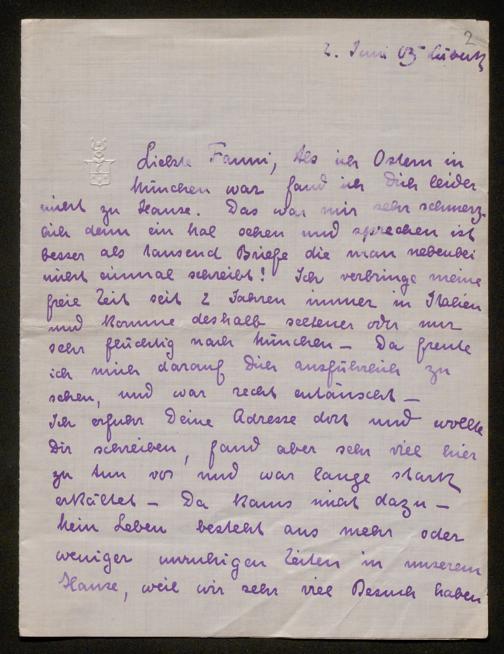 2
2. Juni 05 Lübeck
Liebste Fanni, Als ich Ostern in
München war fand ich Dich leider
nicht zu Hause. Das war mir sehr schmerz-
lich denn ein Mal sehen und sprechen ist
besser als tausend Briefe die man nebenbei
nicht einmal schreibt! Ich verbringe meine
freie Zeit seit 2 Jahren immer in Italien
und komme deshalb seltener oder nur
sehr flüchtig nach München – Da freute
ich mich darauf Dich ausführlich zu
sehen, und war recht entäuscht –
Ich erfuhr Deine Adresse dort und wollte
Dir schreiben, fand aber sehr viel hier
zu tun vor und war lange stark
erkältet – Da kams nicht dazu –
Mein Leben besteht aus mehr oder
weniger unruhigen Zeiten in unserem
Hause, weil wir sehr viel Besuch haben